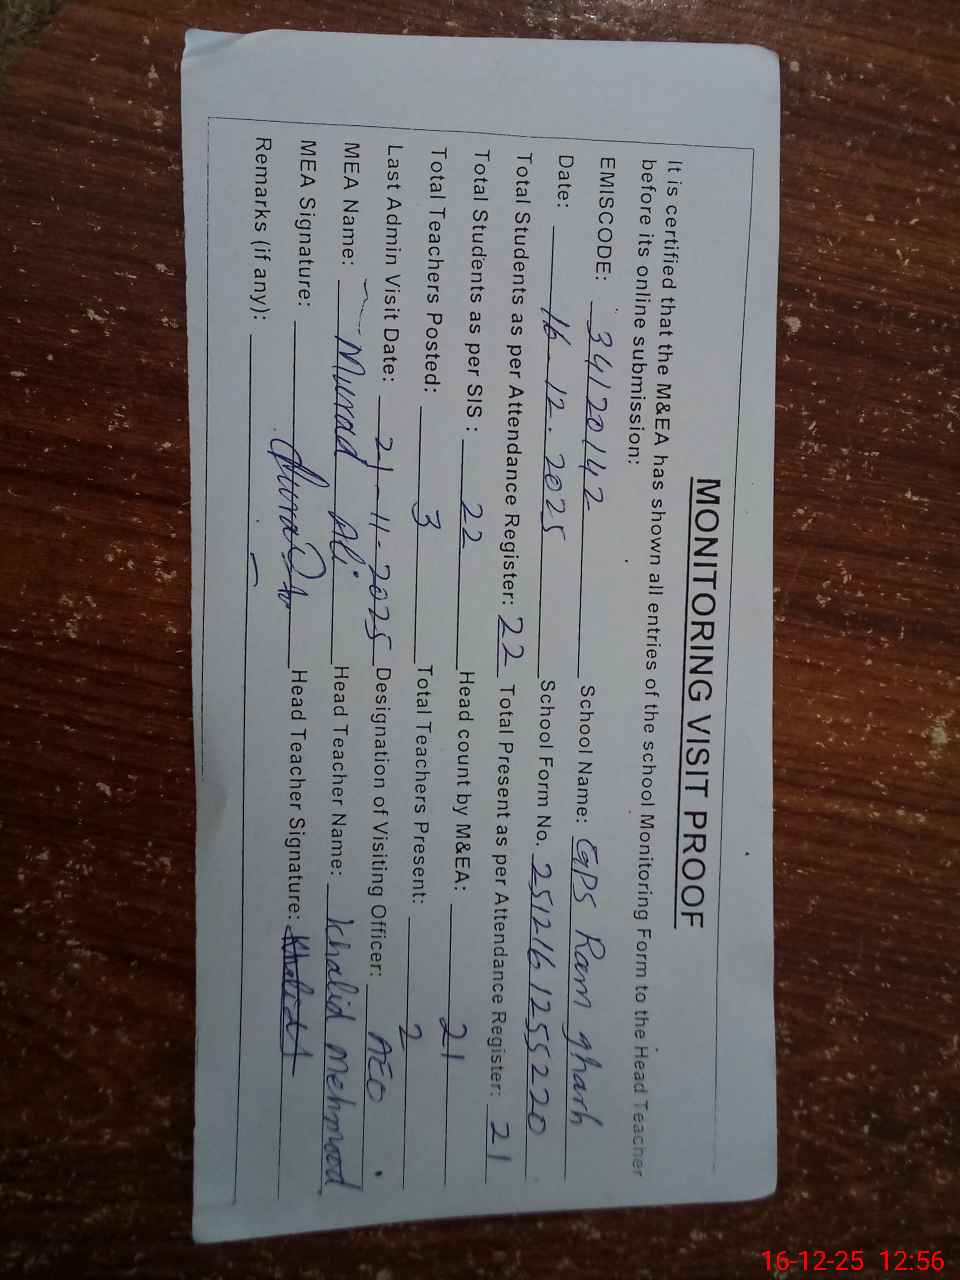 MONITORING VISIT PROOF
It is certified that the M&EA has shown all entries of the school Monitoring Form to the Head Teacher
before its online submission:
EMISCODE: 34120142 School Name: GPS Ram gharh
Date: 16-12-2025 School Form No. 2512161255220
Total Students as per Attendance Register: 22 Total Present as per Attendance Register: 21
Total Students as per SIS : 22 Head count by M&EA: 21
Total Teachers Posted: 3 Total Teachers Present: 2
Last Admin Visit Date: 21-11-2025 Designation of Visiting Officer: AEO
MEA Name: Murad Ali Head Teacher Name: Khalid Mehmood
MEA Signature: Head Teacher Signature: Khalid
Remarks (if any): —
16-12-25 12:56